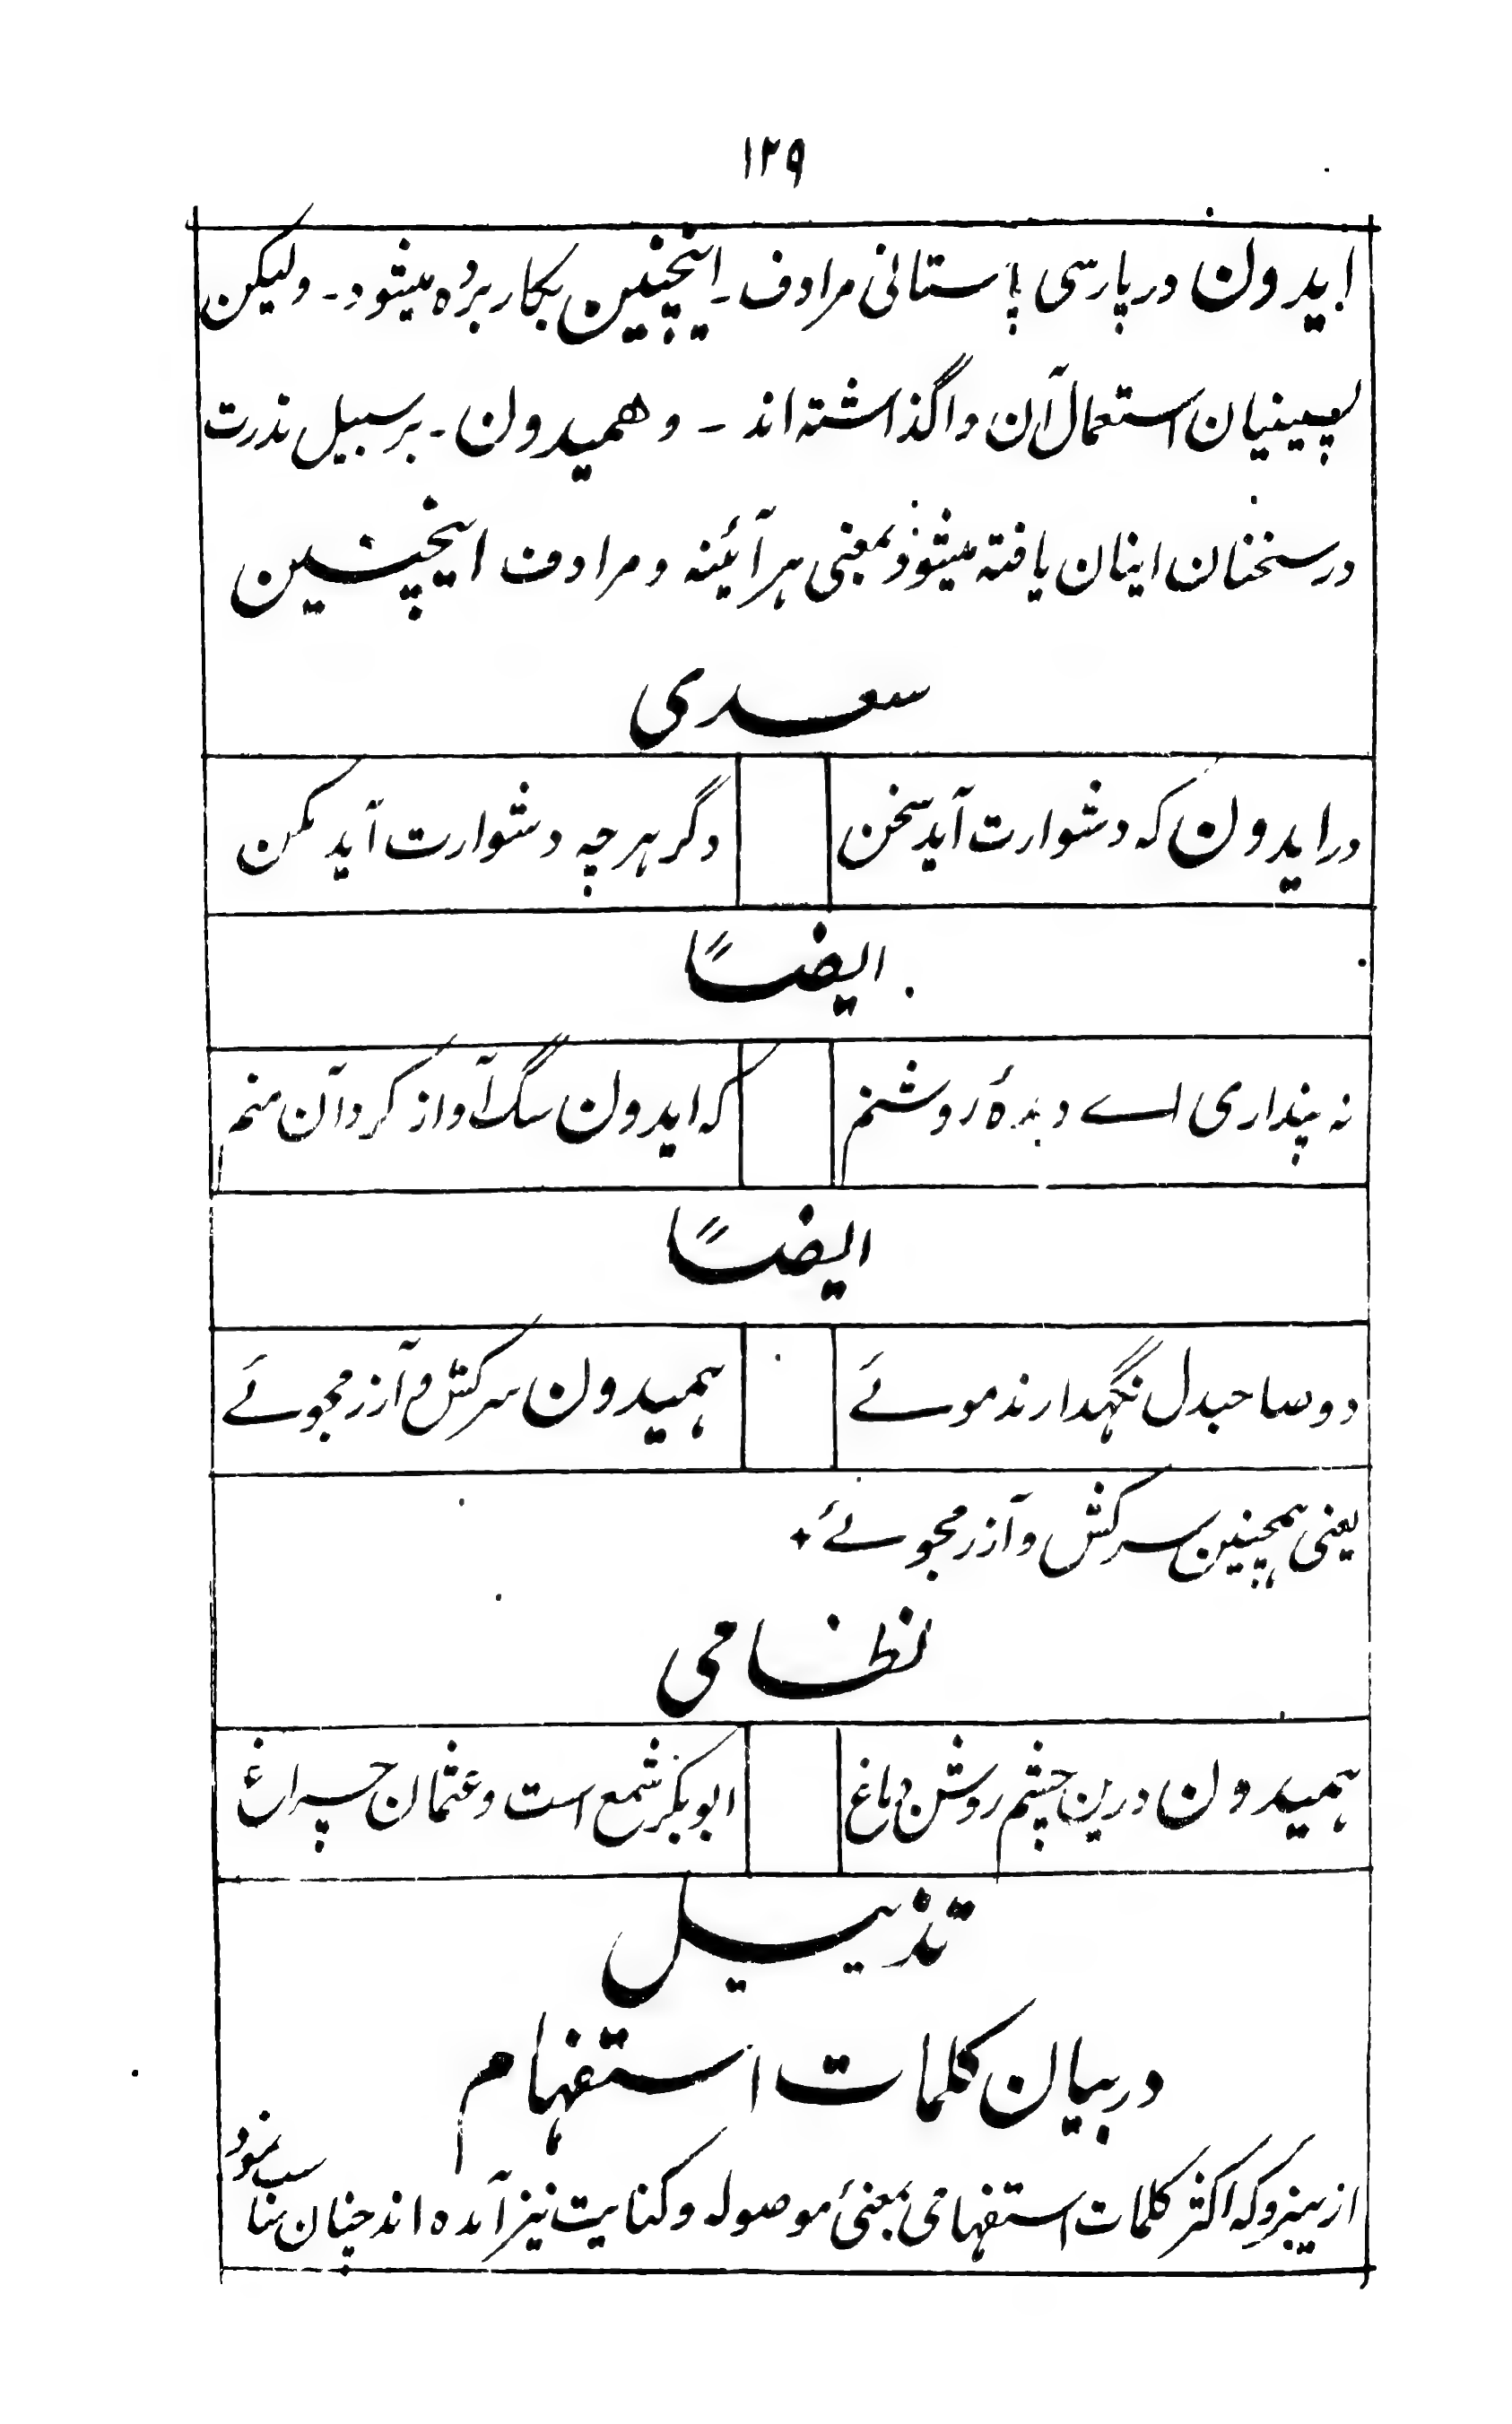 ۱۲۹
ایدون در پارسی باستانی مرادف ۔ اینچنین بکار برده میشود ۔ ولیکن
پسینیان استعمال آن واگذاشته اند ۔ و همیدون ۔ بر سبیل ندرت
در سخنان اینان یافته میشود بمعنی هر آئینه و مرادف اینچنین
سعدی
در ایدون که دشوارت آید سخن
دگر هرچه دشوارت آید مکن
ایضاً
نه پنداری اے دیدهٔ روشنم
که ایدون سگ آواز کرد آن منم
ایضاً
دو صاحبدل نگهدارند موئے
همیدون سرکش و آزرمجوئے
یعنی همچنین سرکش و آزرمجوئے +
نظامی
همیدون درین چشم روشن دماغ
ابوبکر شمع است و عثمان چراغ
تذییل
در بیان کلمات استفهام
ازینرو که اکثر کلمات استفهامی بمعنئ موصوله و کنایت نیز آمده اند چنان مناسب نمود